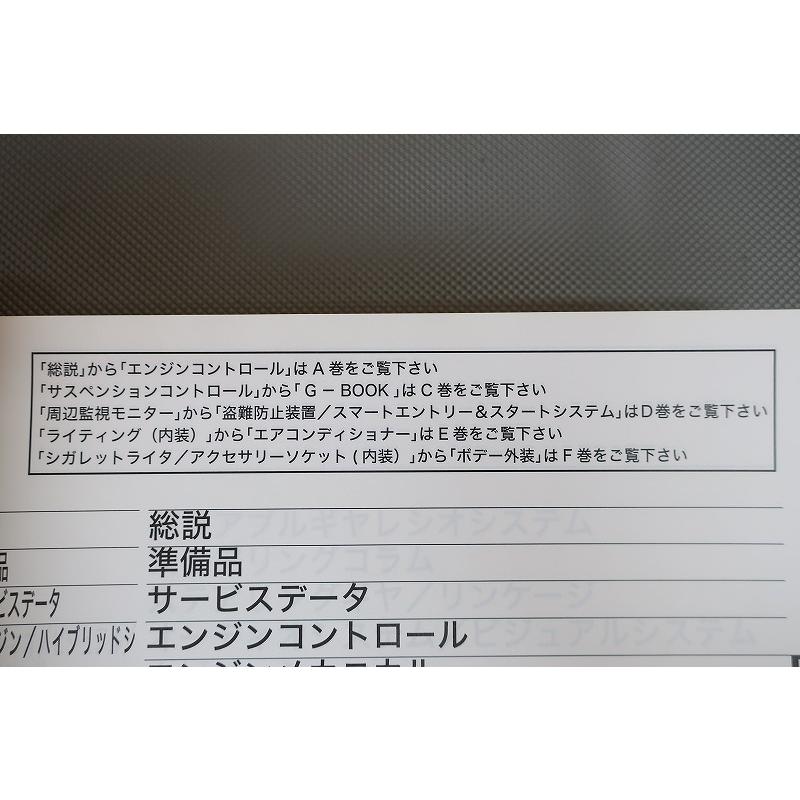 「総説」から「エンジンコントロール」は A 巻をご覧下さい
「サスペンションコントロール」から「 G － BOOK 」は C 巻をご覧下さい
「周辺監視モニター」から「盗難防止装置／スマートエントリー＆スタートシステム」は D 巻をご覧下さい
「ライティング（内装）」から「エアコンディショナー」は E 巻をご覧下さい
「シガレットライタ／アクセサリーソケット（内装）」から「ボデー外装」は F 巻をご覧下さい
総説
品 準備品
ビスデータ サービスデータ
ジン／ハイブリッドシ エンジンコントロール
エンジンメカニカル